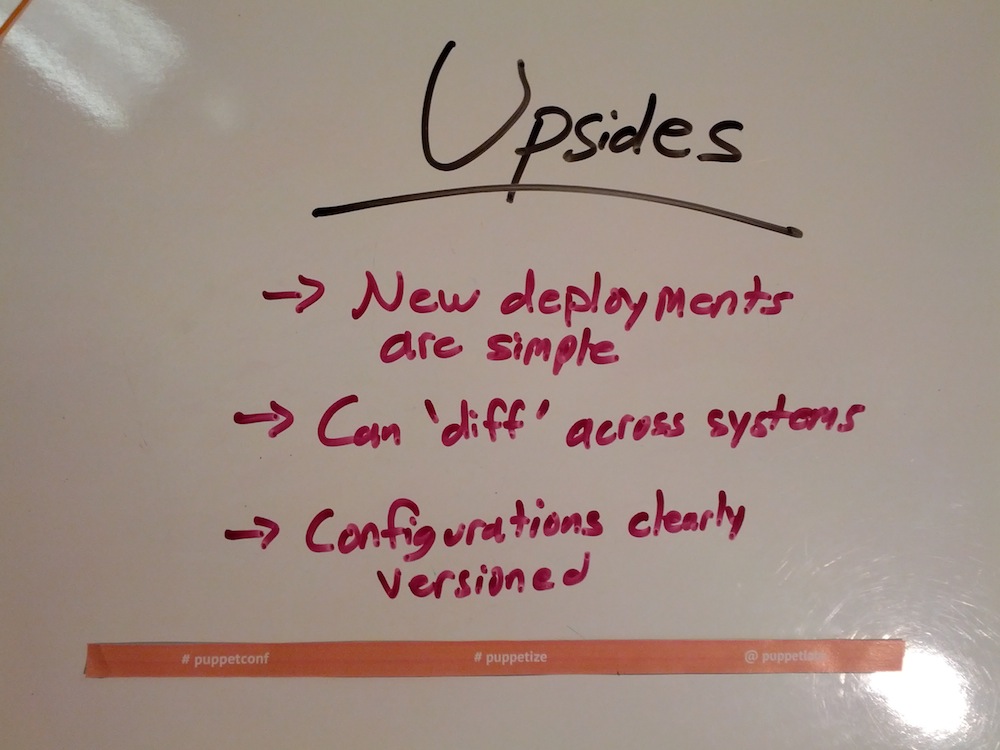 Upsides
→ New deployments
are simple
→ Can 'diff' across systems
→ Configurations clearly
versioned
# puppetconf # puppetize